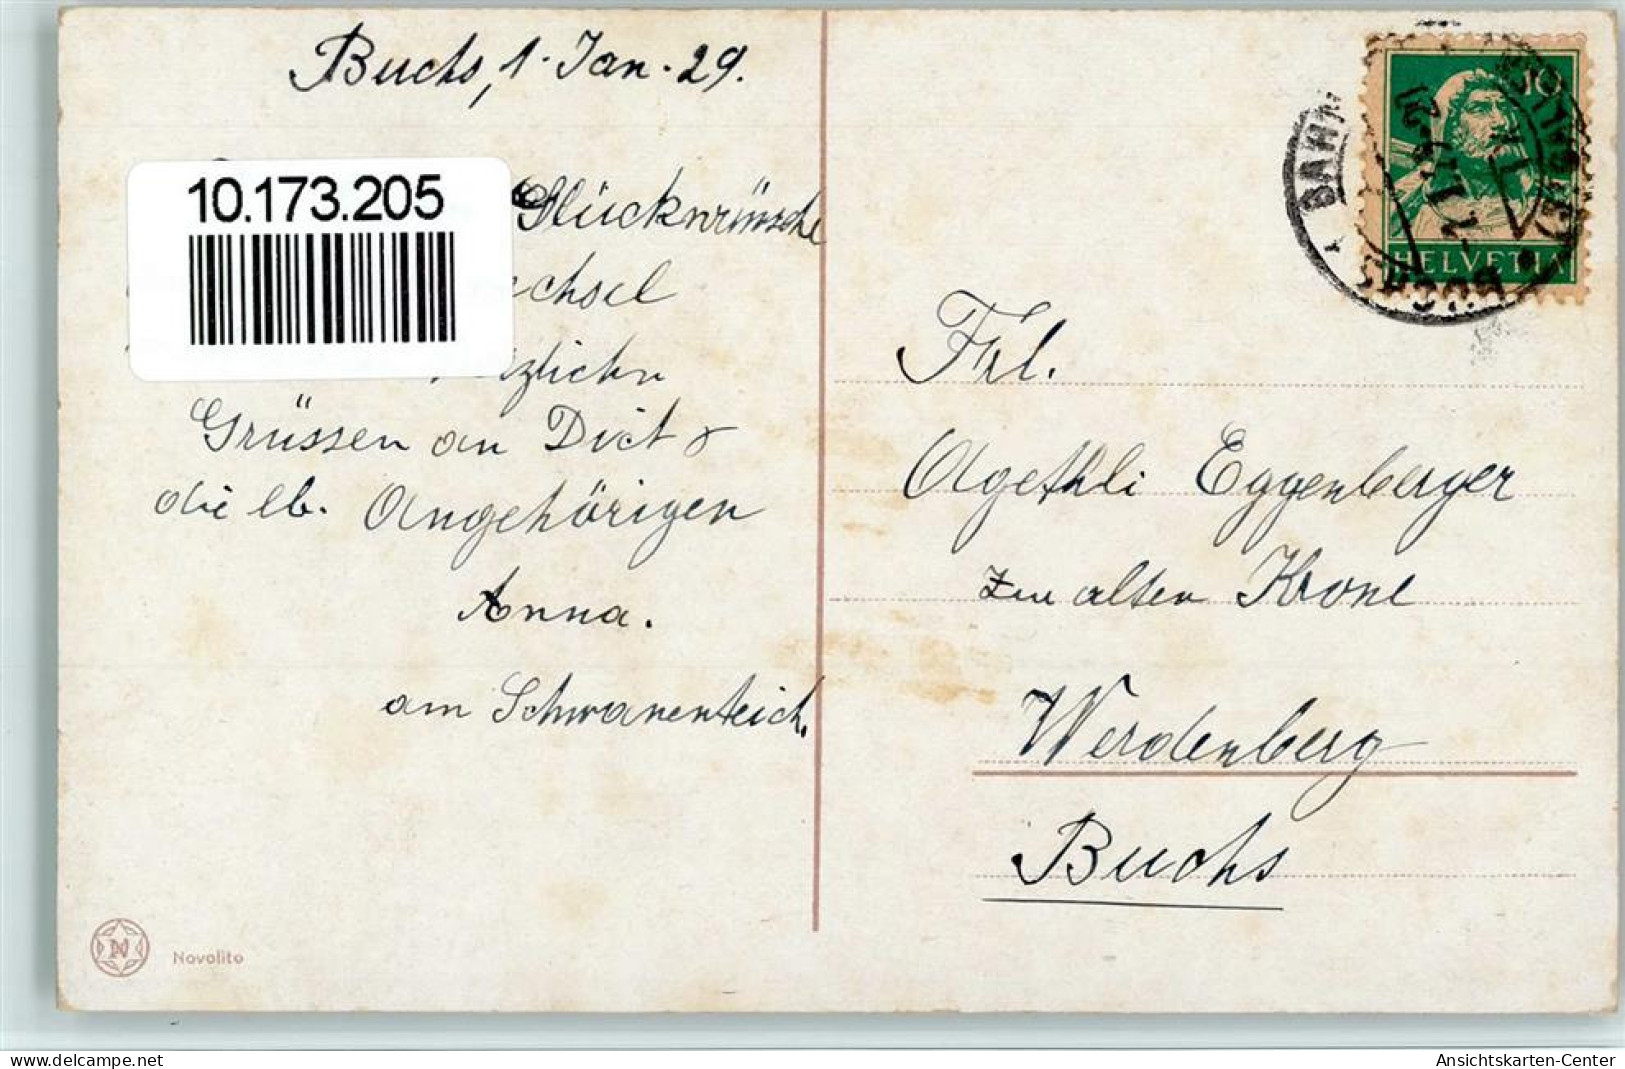 Buchs, 1. Jan. 29.
10.173.205
Glückwünsche
echsel
rzlichn
Grüssen an Dich &
die lb. Angehörigen
Anna.
am Schwanenteich.
10
HELVETIA
BUCHS
Frl.
Agethli Eggenberger
zur alten Krone
Werdenberg
Buchs
N
Novolito
www.delcampe.net
Ansichtskarten-Center